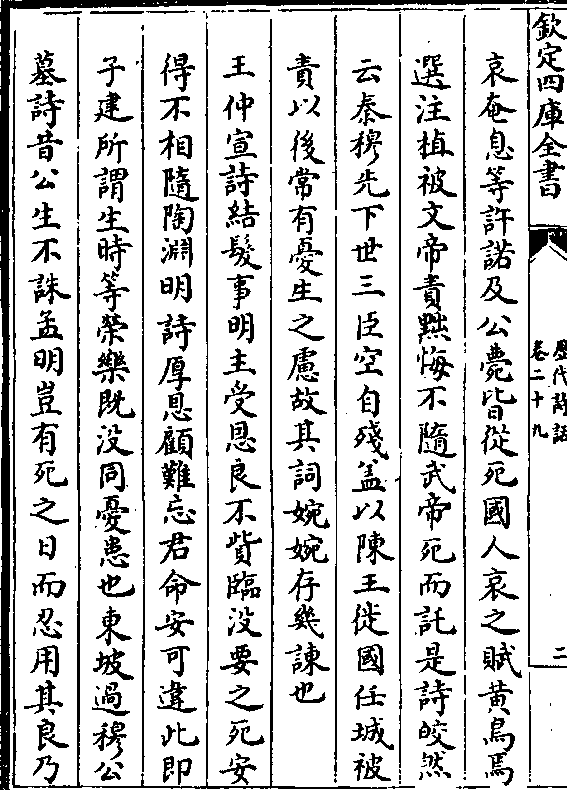 欽定四庫全書
歷代詩話
卷二十九
二
哀奄息等許諾及公薨皆從死國人哀之賦黃鳥焉
選注植被文帝責黜悔不隨武帝死而託是詩皎然
云秦穆先下世三臣空自殘盖以陳王徙國任城被
責以後常有憂生之慮故其詞婉婉存幾諫也
王仲宣詩結髮事明主受恩良不貲臨没要之死安
得不相隨陶淵明詩厚恩顧難忘君命安可違此即
子建所謂生時等榮樂既没同憂患也東坡過穆公
墓詩昔公生不誅孟明豈有死之日而忍用其良乃